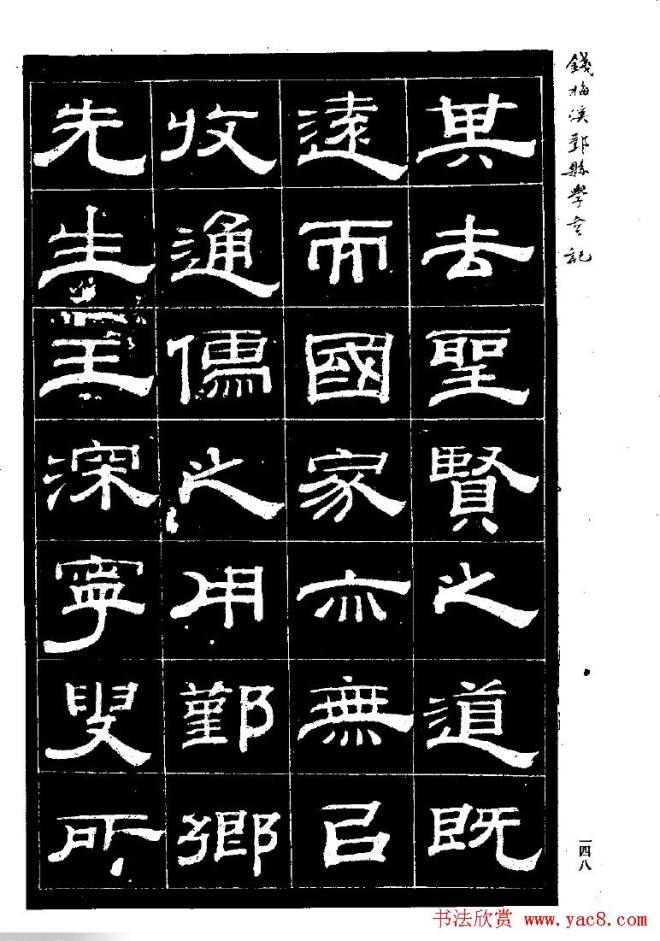 錢梅溪鄞縣學記
其去聖賢之道既
遠而國家亦無㠯
收通儒之用鄞鄉
先生王深寧叟所
一四八
书法欣赏 www.yac8.com